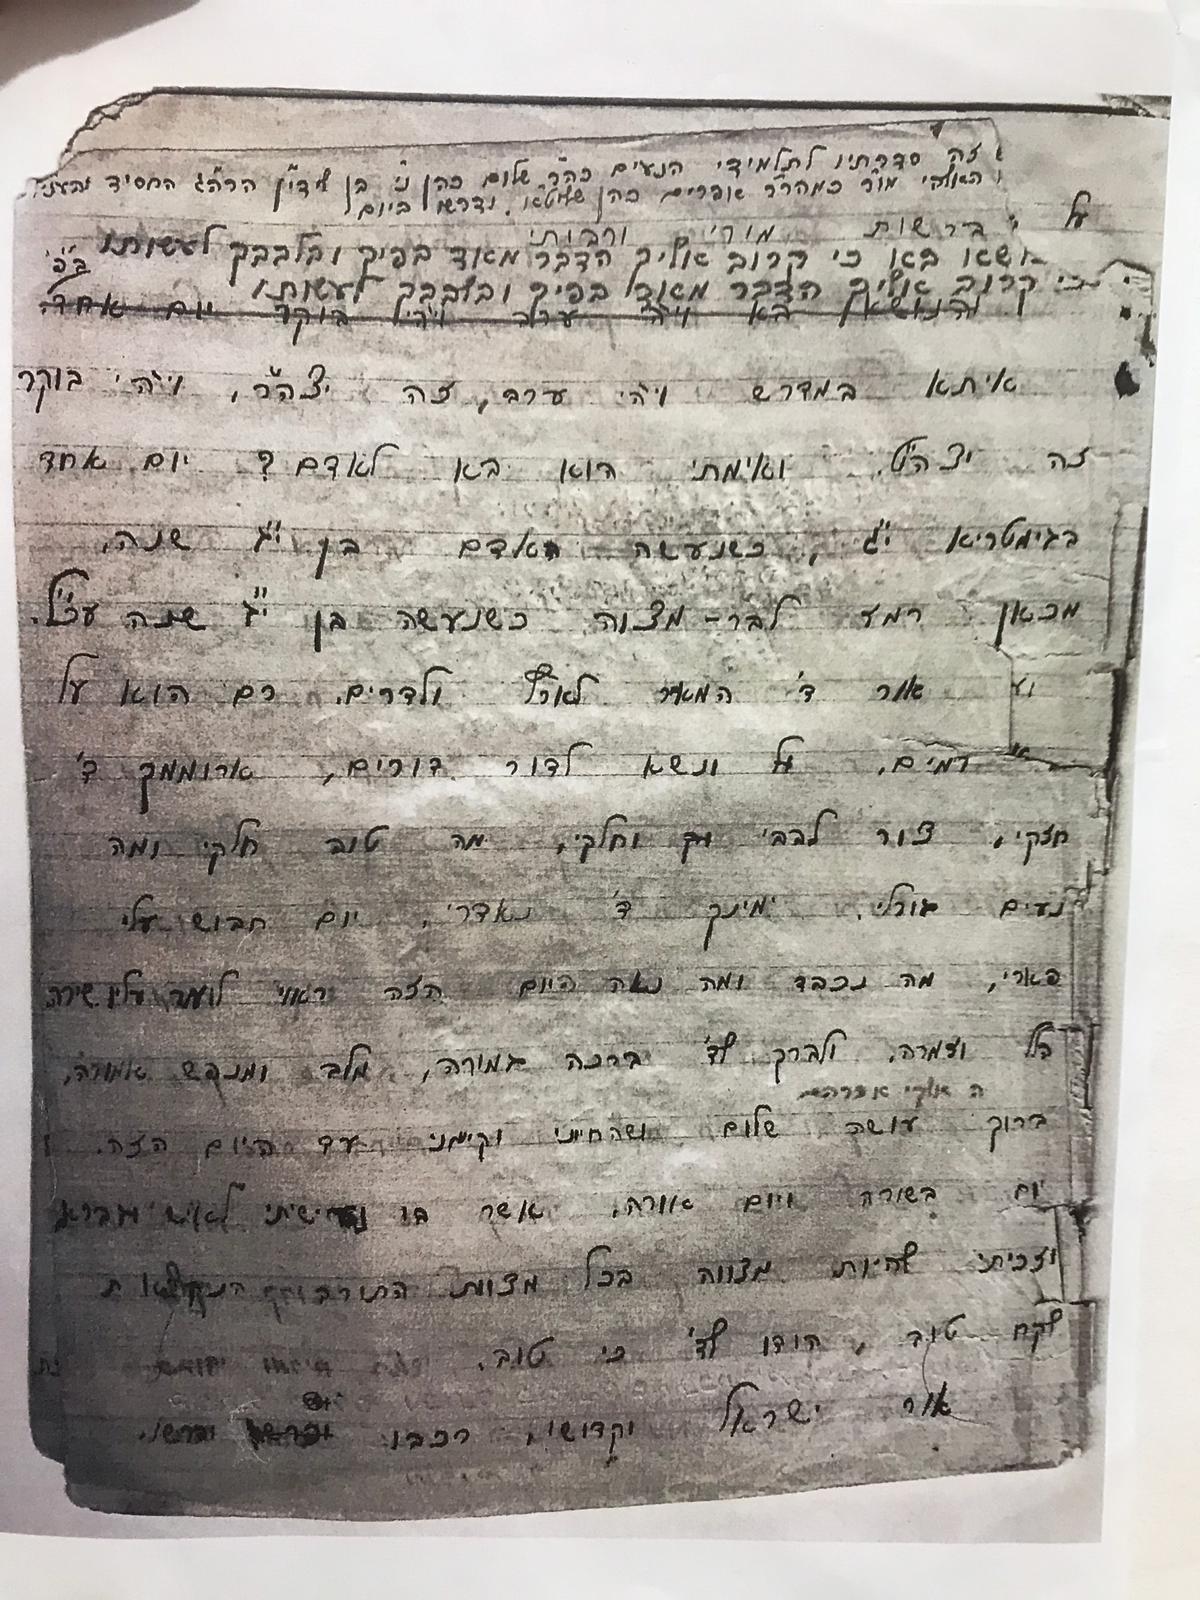 זה סדרתיו לתלמידי הנעים כהר שלום כהן נ"י בן לידי"ן הרה"ג החסיד
האלקי מו"ר כמהר"ר אפרים כהן שליט"א. נדרש ביום
על ברשות מורי ורבותי
נושאו בא כי קרוב אליך הדבר מאוד בפיך ובלבבך לעשותו
כי קרוב אליך הדבר מאוד בפיך ובלבבך לעשותו
הנושא בא ויהי ערב ויהי בוקר יום אחד
איתא במדרש ויהי ערב, זה יצה"ר, ויהי בוקר
זה יצה"ט. ואימתי הוא בא לאדם? יום אחד
בגימטריא י"ג, כשנעשה האדם בן י"ג שנה,
מכאן רמז לבר-מצוה כשנעשה בן י"ג שנה עכ"ל.
אור ד' המאיר לארץ ולדרים. רם הוא על
רמים, על ונשא לדור דורים, ארוממך ד'
חזקי, צור לבבי וחלקי, מה טוב חלקי ומה
נעים גורלי. ימינך ד' נאדרי, יום חבוש עלי
פארי, מה נכבד ומה נאה היום הזה ראוי לומר עליו שירה
הלל וזמרה, ולברך לד' ברכה גמורה, מלב ומנפש אמורה,
ה אלקי אברהם
ברוך עושה שלום ושהחייני וקיימני עד היום הזה.
יום בשורה ויום אורה, אשר בו לאיש
וזכיתי להיות מצווה בכל מצות התורה
לקח טוב, הודו לד' כי טוב.
אור ישראל וקדושו, רכבו ופרשו.